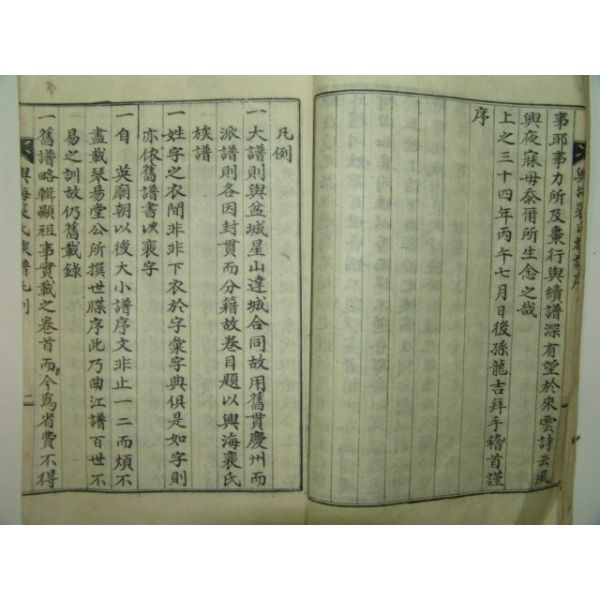 事耶事力所及棗行與續譜深有望於來雲詩云夙
興夜寐毋忝爾所生念之哉
上之三十四年丙午七月日後孫龍吉拜手稽首謹
序
凡例
一大譜則與盆城星山達城合同故用舊貫慶州而
派譜則各因封貫而分籍故卷目題以興海裵氏
族譜
一姓字之衣間非非下衣於字彙字典俱是如字則
亦依舊譜書以裵字
一自 英廟朝以後大小譜序文非止一二而煩不
盡載琴易堂公所撰世牒序此乃曲江譜百世不
易之訓故仍舊載錄
一舊譜略輯顯祖事實載之卷首而今爲省費不得
興海裵氏族譜凡例
二